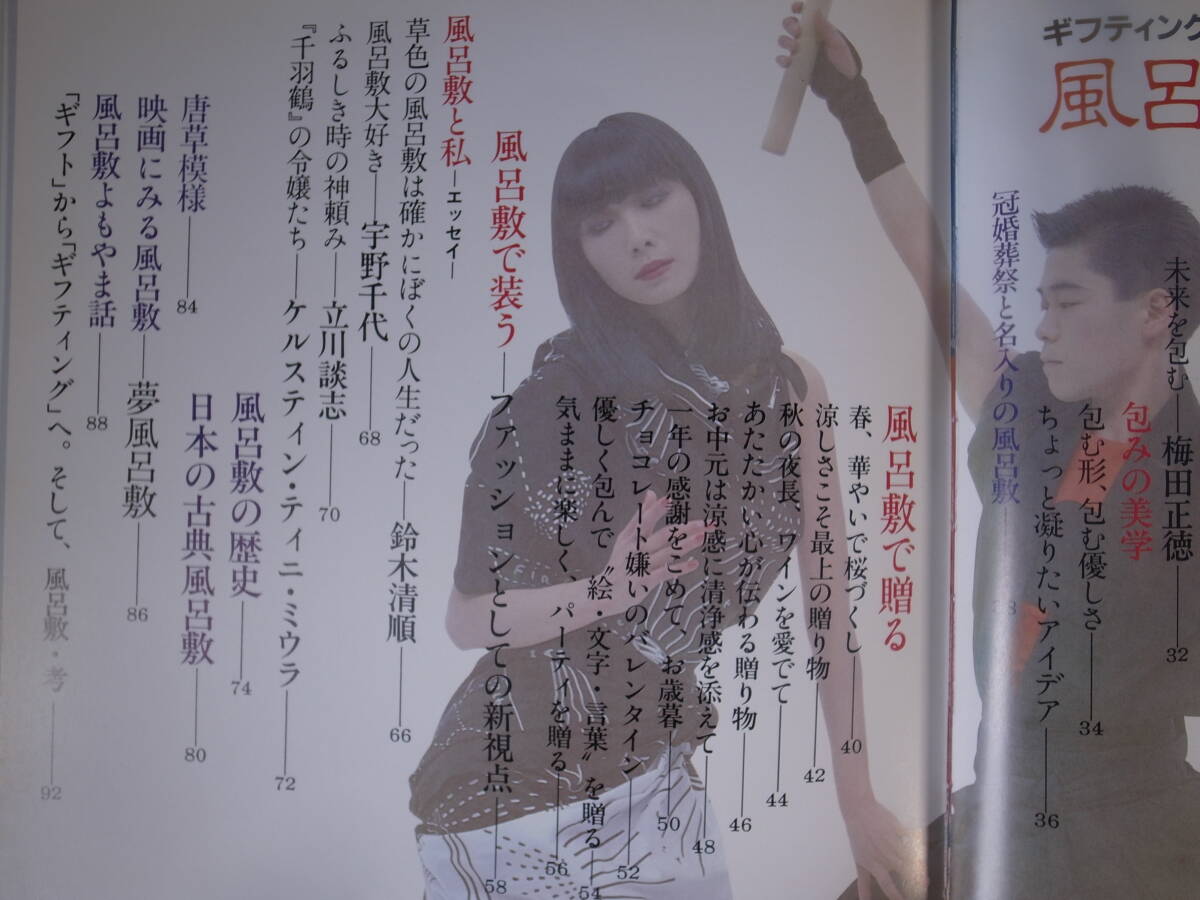 ギフティング
風呂
未来を包む——梅田正徳——32
包みの美学
包む形、包む優しさ——34
ちょっと凝りたいアイデア——36
冠婚葬祭と名入りの風呂敷——38
風呂敷で贈る
春、華やいで桜づくし——40
涼しさこそ最上の贈り物——42
秋の夜長、ワインを愛でて——44
あたたかい心が伝わる贈り物——46
お中元は涼感に清浄感を添えて——48
一年の感謝をこめて、お歳暮——50
チョコレート嫌いのバレンタイン——52
優しく包んで〝絵・文字・言葉〟を贈る——54
気ままに楽しく、パーティを贈る——56
風呂敷で装う——ファッションとしての新視点——58
風呂敷と私—エッセイ—
草色の風呂敷は確かにぼくの人生だった——鈴木清順——66
風呂敷大好き——宇野千代——68
ふるしき時の神頼み——立川談志——70
『千羽鶴』の令嬢たち——ケルスティン・ティニ・ミウラ——72
風呂敷の歴史——74
日本の古典風呂敷——80
唐草模様——84
映画にみる風呂敷——夢風呂敷——86
風呂敷よもやま話——88
「ギフト」から「ギフティング」へ。そして、風呂敷・考——92